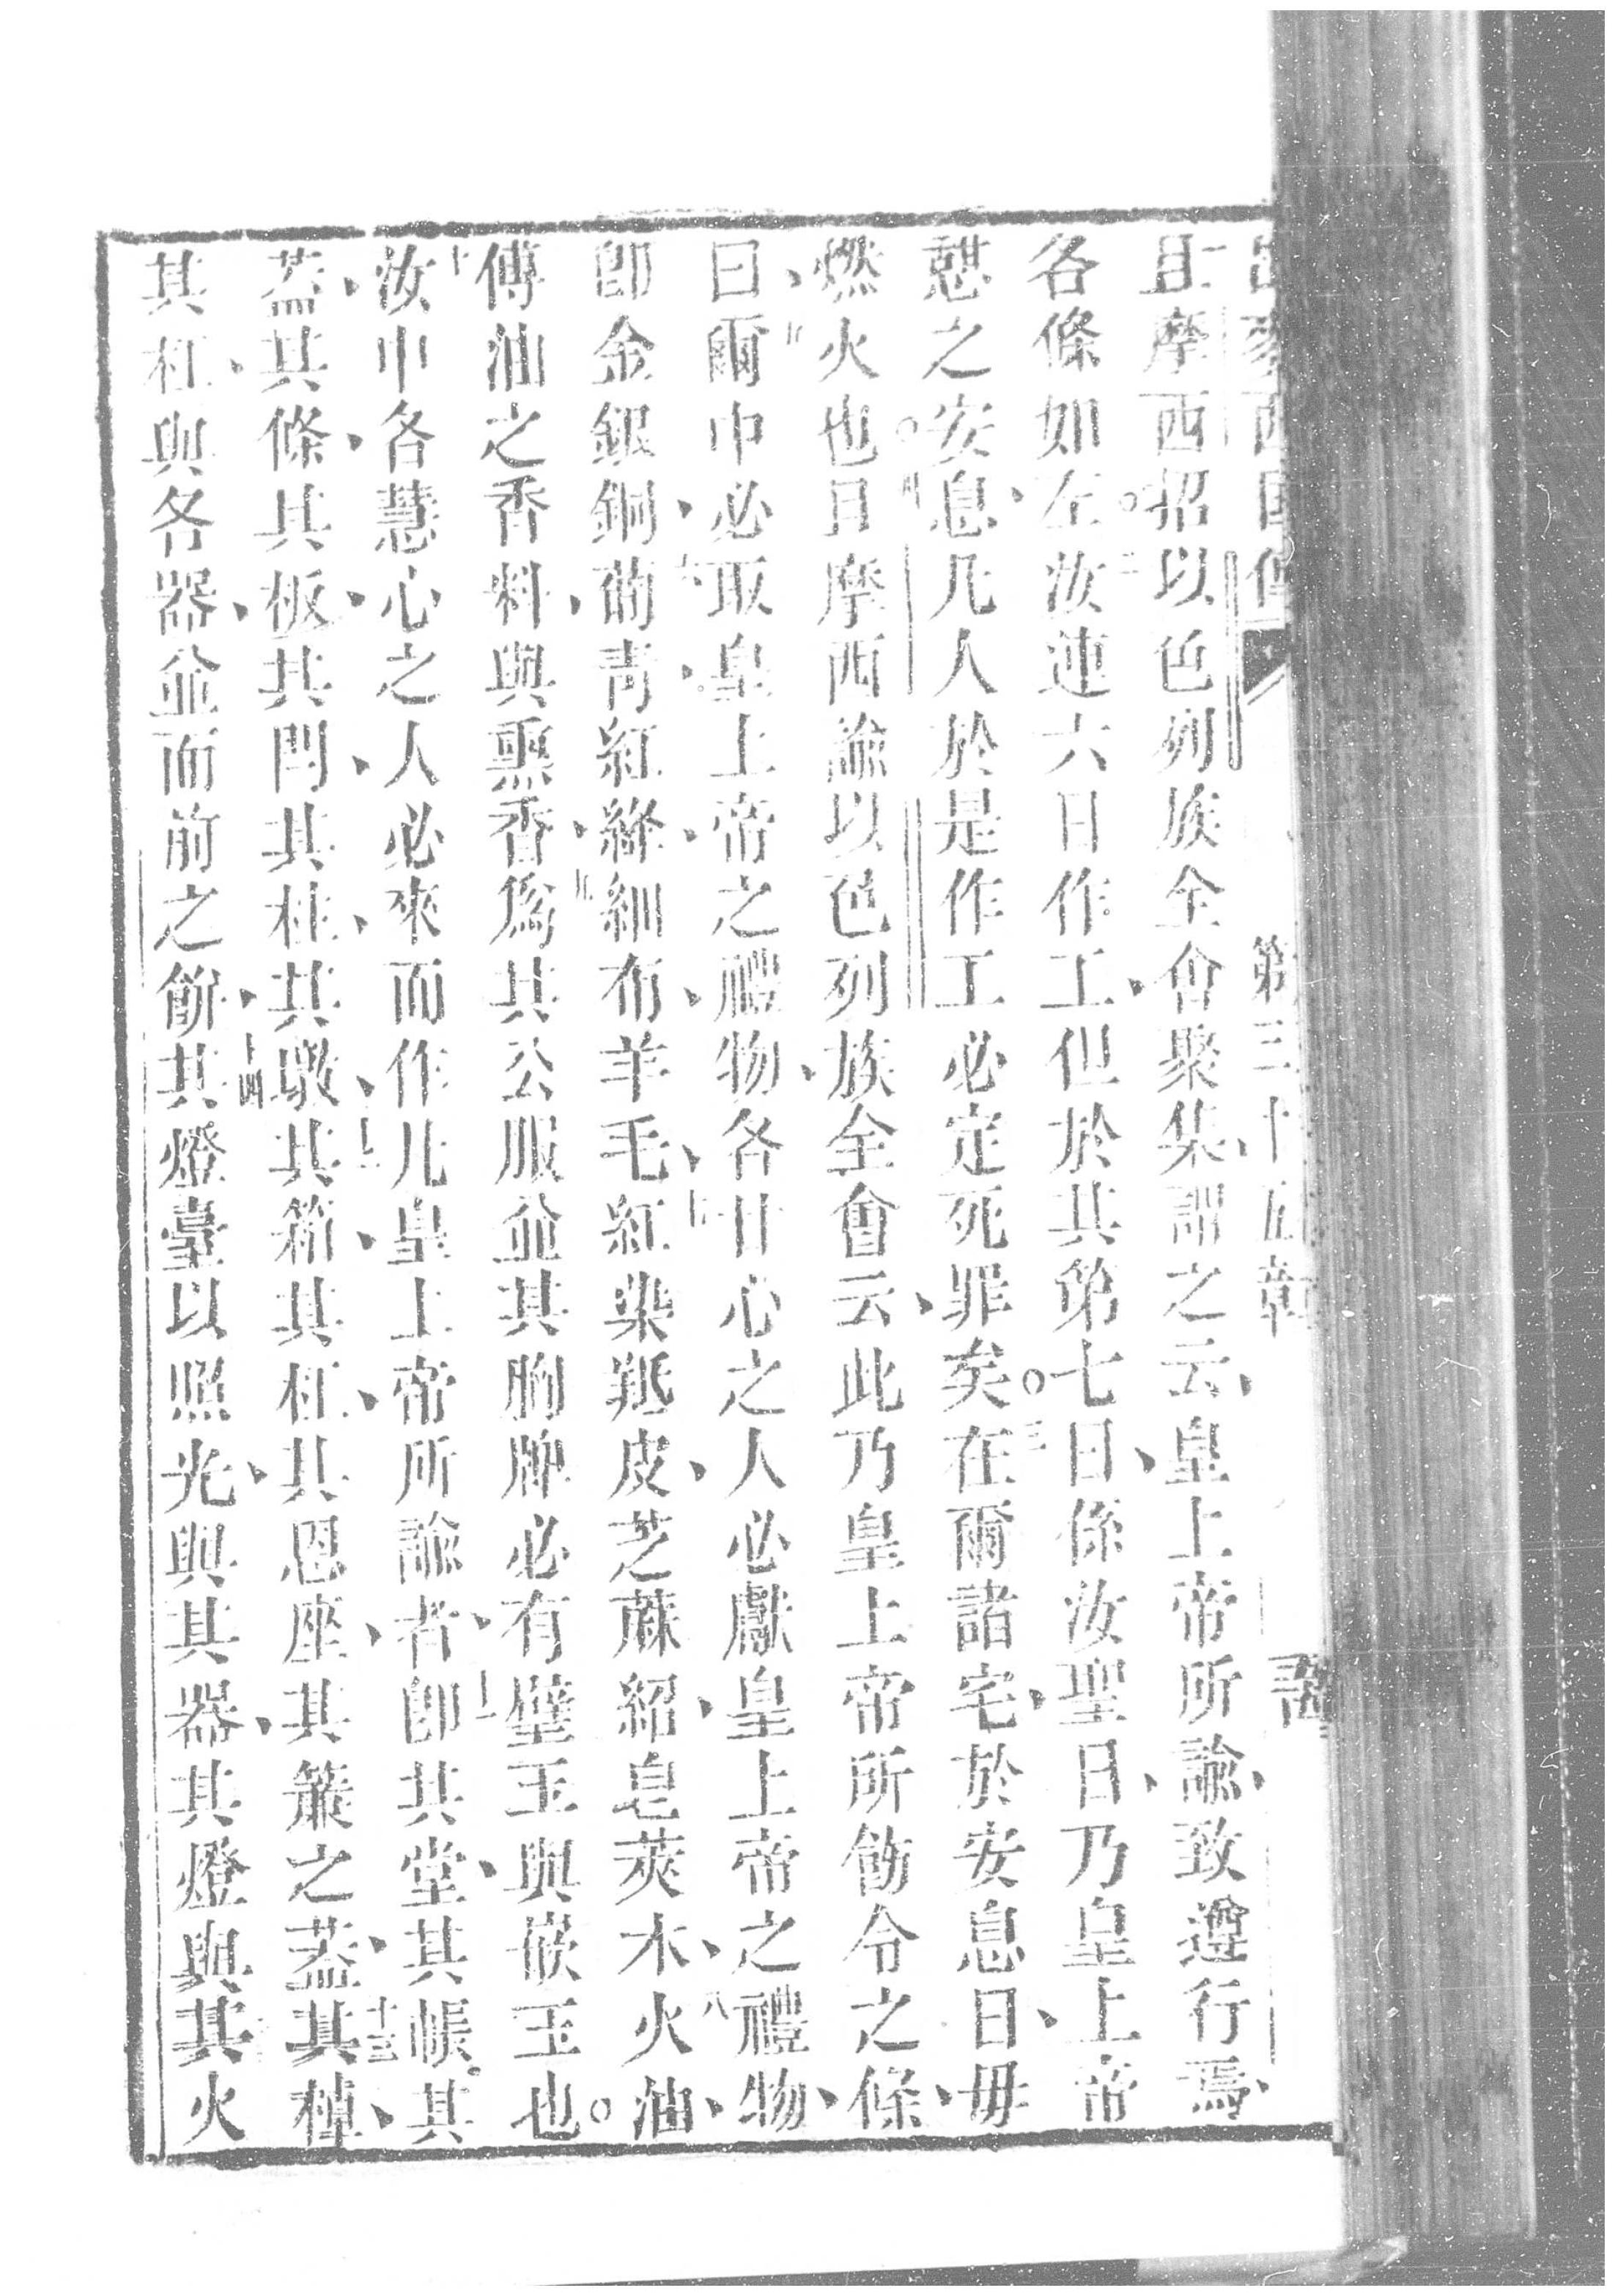 第三十五章
一且摩西招以色列族全會聚集、謂之云、皇上帝所諭、致遵行焉、
各條如左。二汝連六日作工、但於其第七日、係汝聖日、乃皇上帝
憇之安息、凡人於是作工、必定死罪矣。三在爾諸宅、於安息日、毋
燃火也。四且摩西諭以色列族全會云、此乃皇上帝所飭令之條、
曰、五爾中必取皇上帝之禮物、各甘心之人、必獻皇上帝之禮物、
卽金銀銅、六葡青紅絳細布、羊毛、七紅染羝皮、芝蔴紹、皂莢木、八火油、
傅油之香料、與熏香、九爲其公服、並其胸牌、必有璧玉與嵌玉也。
十汝中各慧心之人、必來而作凡皇上帝所諭者、十一卽其堂、其帳、其
葢、其條、其板、其閂、其柱、其墩、十二其箱、其杠、其恩座、其簾之葢、十三其棹、
其杠、與各器、並面前之餅、十四其燈臺以照光、與其器、其燈與其火